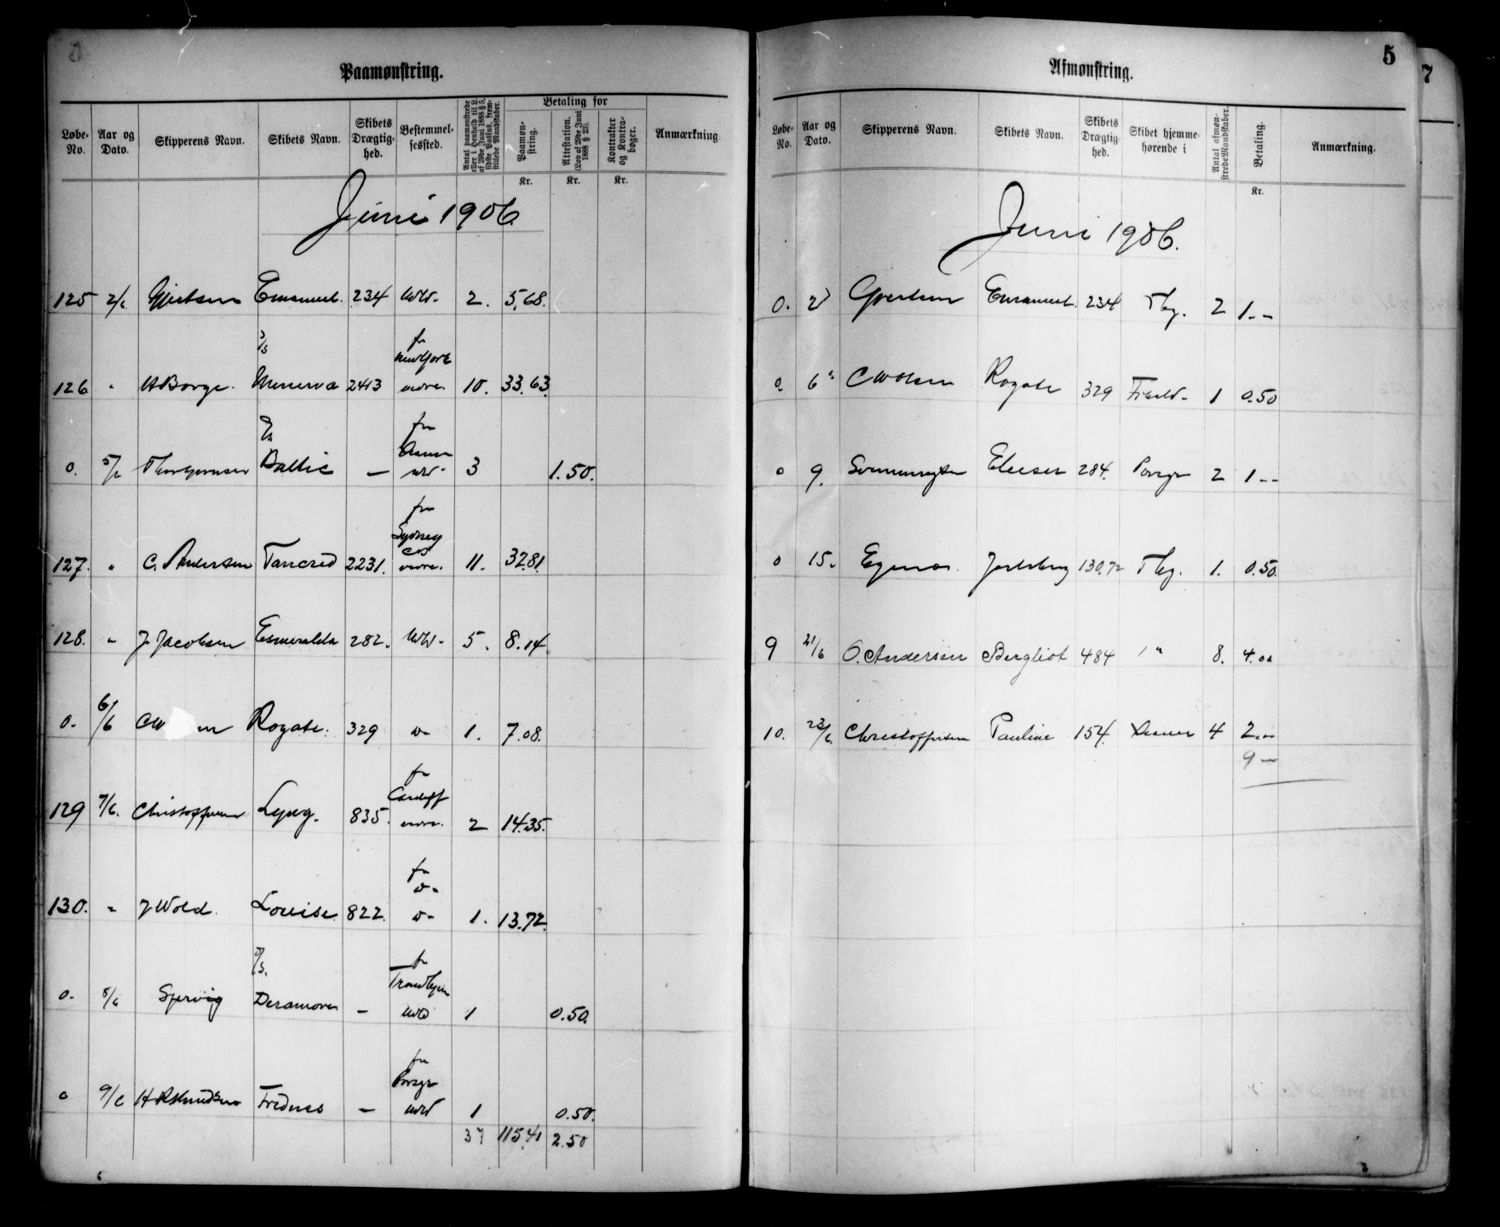 Paamønstring.
Løbe-No. Aar og Dato. Skipperens Navn. Skibets Navn. Skibets Drægtighed. Bestemmelsessted. Antal paamønstrede eller i Henhold til L. af 20de Juni 1888 § 5, sidste Passus, fremstillede Mandskaber. Betaling for Paamønstring. Attestation. (Lov af 20de Juni 1888 § 23). Kontrakter og Kontrabøger. Anmærkning.
Kr. Kr. Kr.
Juni 1906
125 2/6 Emanuel 234 2. 5,68.
s/s fra
126 " Borge. Minerva 2413 10. 33.63.
s/s fra
0. 5/6 Baltic — 3 1.50.
fra
Sydney
127. " C. Andersen Tancred 2231. 11. 32.81.
128. " J. Jacobsen Esmeralda 282. 5. 8.14
0. 6/6 Rogate. 329 1. 7.08.
fra
Cardiff
129 7/6. Christoffersen 835. 2 14.35.
fra
130. " J Wold. Louise. 822. 1. 13.72.
s/s. fra
0. 8/6 — 1 0.50.
fra
Porsgr
0 9/6 Knudsen Frednes — 1 0.50.
37 115.41 2.50
5
Afmønstring.
Løbe-No. Aar og Dato. Skipperens Navn. Skibets Navn. Skibets Drægtighed. Skibet hjemmehørende i Antal afmønstrede Mandskaber. Betaling. Anmærkning.
Kr.
Juni 1906.
0. 2 Emanuel. 234 Tbg. 2 1.--
0. 6 C W Olsen Rogate 329 1 0.50
0 9. Elieser 284. Porsgr 2 1--
0 15. Jarlsberg 130.72 Tbg. 1. 0.50.
9 21/6 O. Andersen Bergliot 484 " 8. 4.00
10. 23/6 Christoffersen Pauline 154. 4 2.--
9 —
7